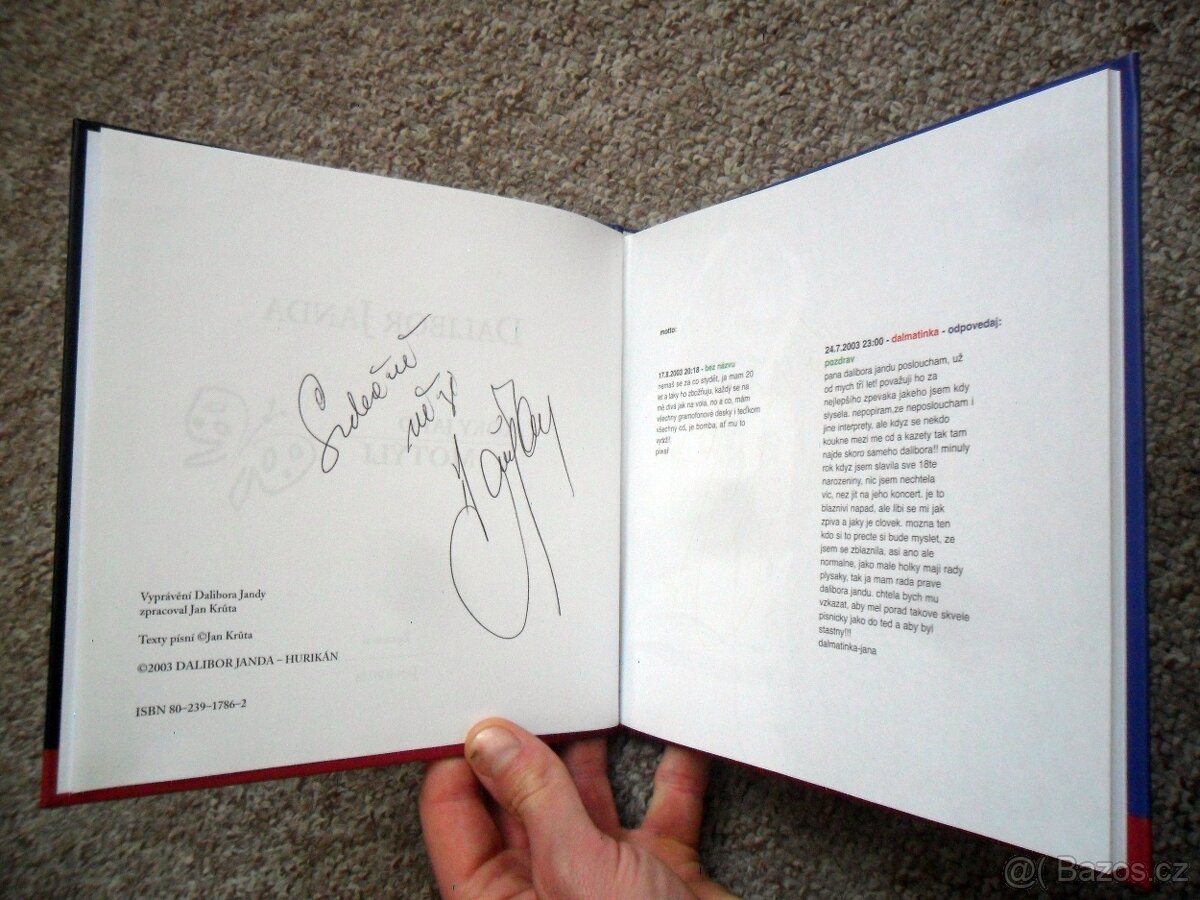 Srdečně
Vyprávění Dalibora Jandy
zpracoval Jan Krůta
Texty písní ©Jan Krůta
©2003 DALIBOR JANDA – HURIKÁN
ISBN 80–239–1786–2
motto:
17.8.2003 20:18 - bez názvu
nemaš se za co stydět, ja mam 20
let a taky ho zbožňuju, každý se na
mě divá jak na vola, no a co, mám
všechny gramofonové desky i teďkom
všechny cd, je bomba, ať mu to
vydží!
pixař
24.7.2003 23:00 - dalmatinka - odpovedaj:
pozdrav
pana dalibora jandu posloucham, už
od mych tří let! považuji ho za
nejlepšiho zpevaka jakeho jsem kdy
slysela. nepopiram,ze neposloucham i
jine interprety, ale kdyz se nekdo
koukne mezi me cd a kazety tak tam
najde skoro sameho dalibora!! minuly
rok kdyz jsem slavila sve 18te
narozeniny, nic jsem nechtela
vic, nez jit na jeho koncert. je to
blaznivi napad, ale libi se mi jak
zpiva a jaky je clovek. mozna ten
kdo si to precte si bude myslet, ze
jsem se zblaznila, asi ano ale
normalne, jako male holky maji rady
plysaky, tak ja mam rada prave
dalibora jandu. chtela bych mu
vzkazat, aby mel porad takove skvele
pisnicky jako do ted a aby byl
stastny!!!
dalmatinka-jana
@( Bazos.cz